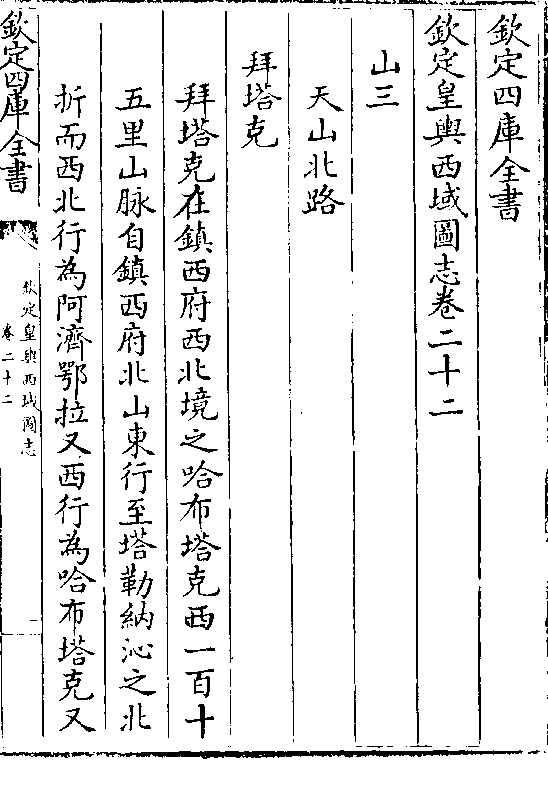 欽定四庫全書
欽定皇輿西域圖志卷二十二
山三
天山北路
拜塔克
拜塔克在鎮西府西北境之哈布塔克西一百十
五里山脉自鎮西府北山東行至塔勒納沁之北
折而西北行為阿濟鄂拉又西行為哈布塔克又
欽定四庫全書
欽定皇輿西域圖志
卷二十二
一